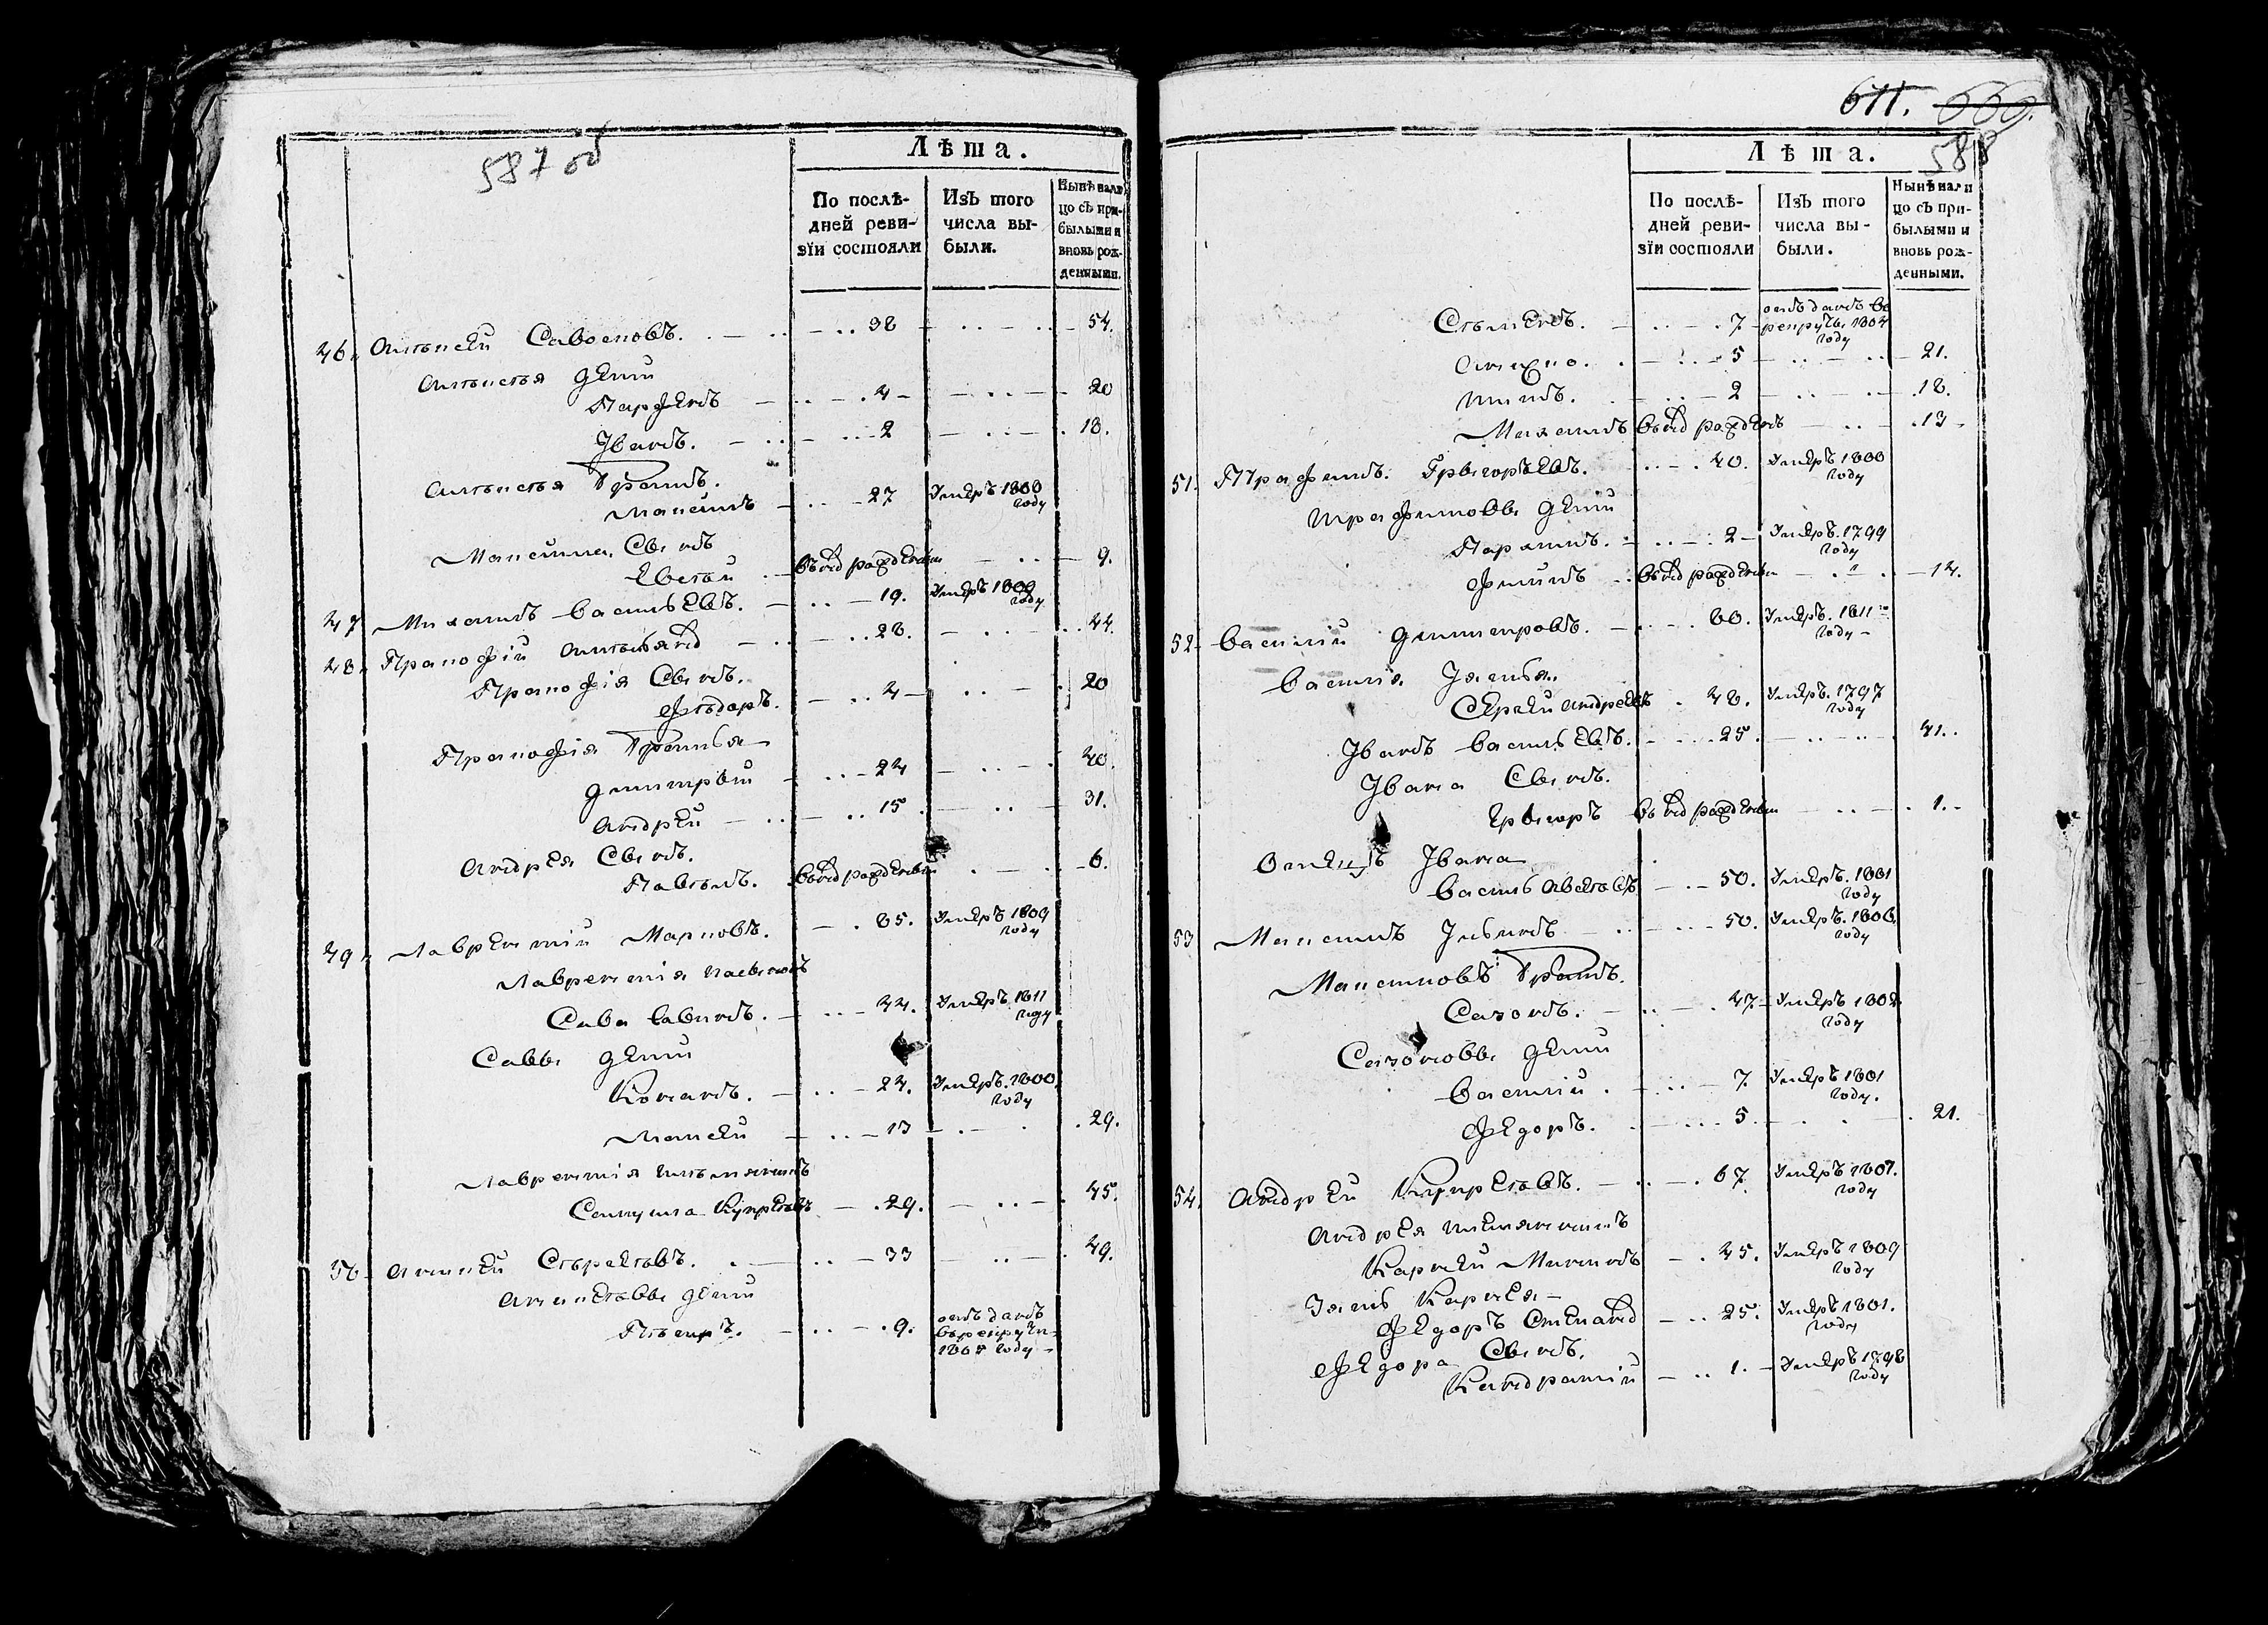 587 об
Лѣта.
По послѣ- дней реви- зіи состояли
Изъ того числа вы- были.
Нынѣ нали цо съ при- былыми и вновь рож- денными.
46. Алѣксѣй Савостовъ. 38 54.
Алѣксѣя дети
Парфенъ 4 20
Іванъ. 2 18.
Алѣксѣя братъ.
Максимъ 27 Умеръ 1800 году
Максима Сынъ
Евсей вьнороженъ 9.
47 Михаилъ Васильевъ. 19. Умеръ 1809 году
48. Пракофій 28. 44.
Пракофія Сынъ.
Фѣдоръ. 4 20
Пракофія братья
Дмитрей 24 40.
Андрей 15 31.
Андрея Сынъ.
Павелъ. вьнороженъ 6.
49. Лаврентій Марковъ. 85. Умеръ 1809 году
Лаврентія пасынокъ
Сава Савинъ. 44. Умеръ 1811 году
Саввы дети
Конанъ. 24. Умеръ. 1800 году
Макей 13 29.
Лаврентія племянникъ
29. 45.
50. Аликей 33 49.
дети
Пѣтръ. 9. отъданъ въ рекруты 1807 году
611. 669.
588
Лѣта.
По послѣ- дней реви- зіи состояли
Изъ того числа вы- были.
Нынѣ нали цо съ при- былыми и вновь рож- денными.
Сѣменъ. 7 отъданъ въ рекруты 1804 году
5 21.
Титъ. 2 18.
Михаилъ вьнороженъ 13
51. Трафимъ. Григорьевъ. 40. Умеръ 1800 году
Трафимовы дети
2 Умеръ. 1799 году
Филипъ вьнороженъ 14.
52. Василій Дмитровъ. 60. Умеръ. 1811 году
Василія Зятья.
Сергей Андреевъ 48. Умеръ. 1797 году
Іванъ Васильевъ. 25. 41.
Івана Сынъ.
Егоръ вьнороженъ 1.
Отецъ Івана
Василь 50. Умеръ. 1801 году
53 Максимъ Ильинъ 50. Умеръ. 1806. году
Максимовъ братъ.
Сазонъ. 47 Умеръ 1802 году
Сазоновы дети
Василій. 7 Умеръ 1801 году.
Федоръ. 5 21.
54. Андрей 67. Умеръ 1807. году
Андрея племянникъ
Карней Мининъ 45. Умеръ 1809 году
Зять Карнея
Федоръ Степановъ 25. Умеръ 1801. году
Федора Сынъ.
Кандратій 1. Умеръ 1798 году